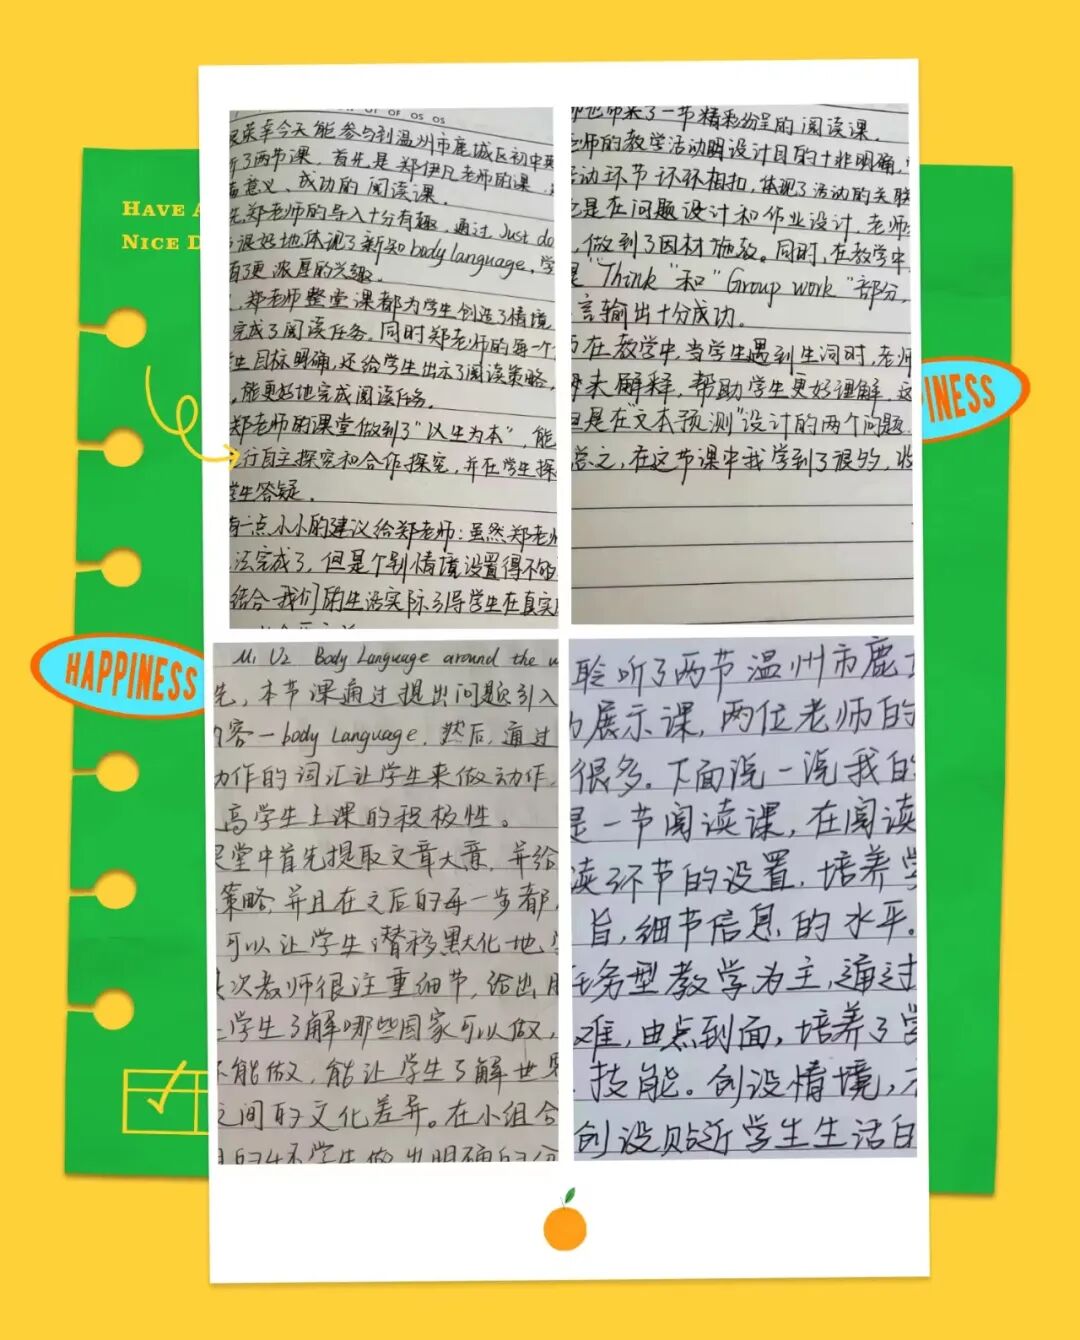 HAVE A
NICE D
HAPPINESS
INESS
OF OS OS
荣幸今天能参与到温州市鹿城区初中英
了两节课，首先是郑伊凡老师的课，
意义、成功的阅读课。
先，郑老师的导入十分有趣，通过Just do
很好地体现了新知body language，学
有了更浓厚的兴趣。
，郑老师整堂课都为学生创造了情境
完成了阅读任务。同时郑老师的每一个
生目标明确，还给学生出示了阅读策略，
，能更好地完成阅读任务。
郑老师的课堂做到了"以生为本"，能
行自主探究和合作探究，并在学生探
学生答疑。
有一点小小的建议给郑老师：虽然郑老师
法完成了，但是个别情境设置得不够
结合我们的生活实际引导学生在真实
师也带来了一节精彩纷呈的阅读课。
老师的教学活动明设计目的十非明确，
活动环节环环相扣，体现了活动的关联
是在问题设计和作业设计，老师
，做到了因材施教。同时，在教学中
是"Think"和"Group work"部分，
言输出十分成功。
在教学中，当学生遇到生词时，老师
来解释，帮助学生更好理解，这
但是在"文本预测"设计的两个问题
总之，在这节课中我学到了很多，收
M1 U2 Body Language around the w
先，本节课通过提出问题引入
内容—body Language，然后，通过
动作的词汇让学生来做动作，
高学生上课的积极性。
课堂中首先提取文章大意，并给
策略，并且在之后的每一步都
可以让学生潜移默化地
其次教师很注重细节，给出
让学生了解哪些国家可以做，
不能做，能让学生了解世界
之间的文化差异。在小组合
聆听了两节温州市鹿
的展示课，两位老师的
很多。下面说一说我的
是一节阅读课，在阅读
读环节的设置，培养学
旨，细节信息的水平。
任务型教学为主，通过
难，由点到面，培养了学
技能。创设情境，
创设贴近学生生活的